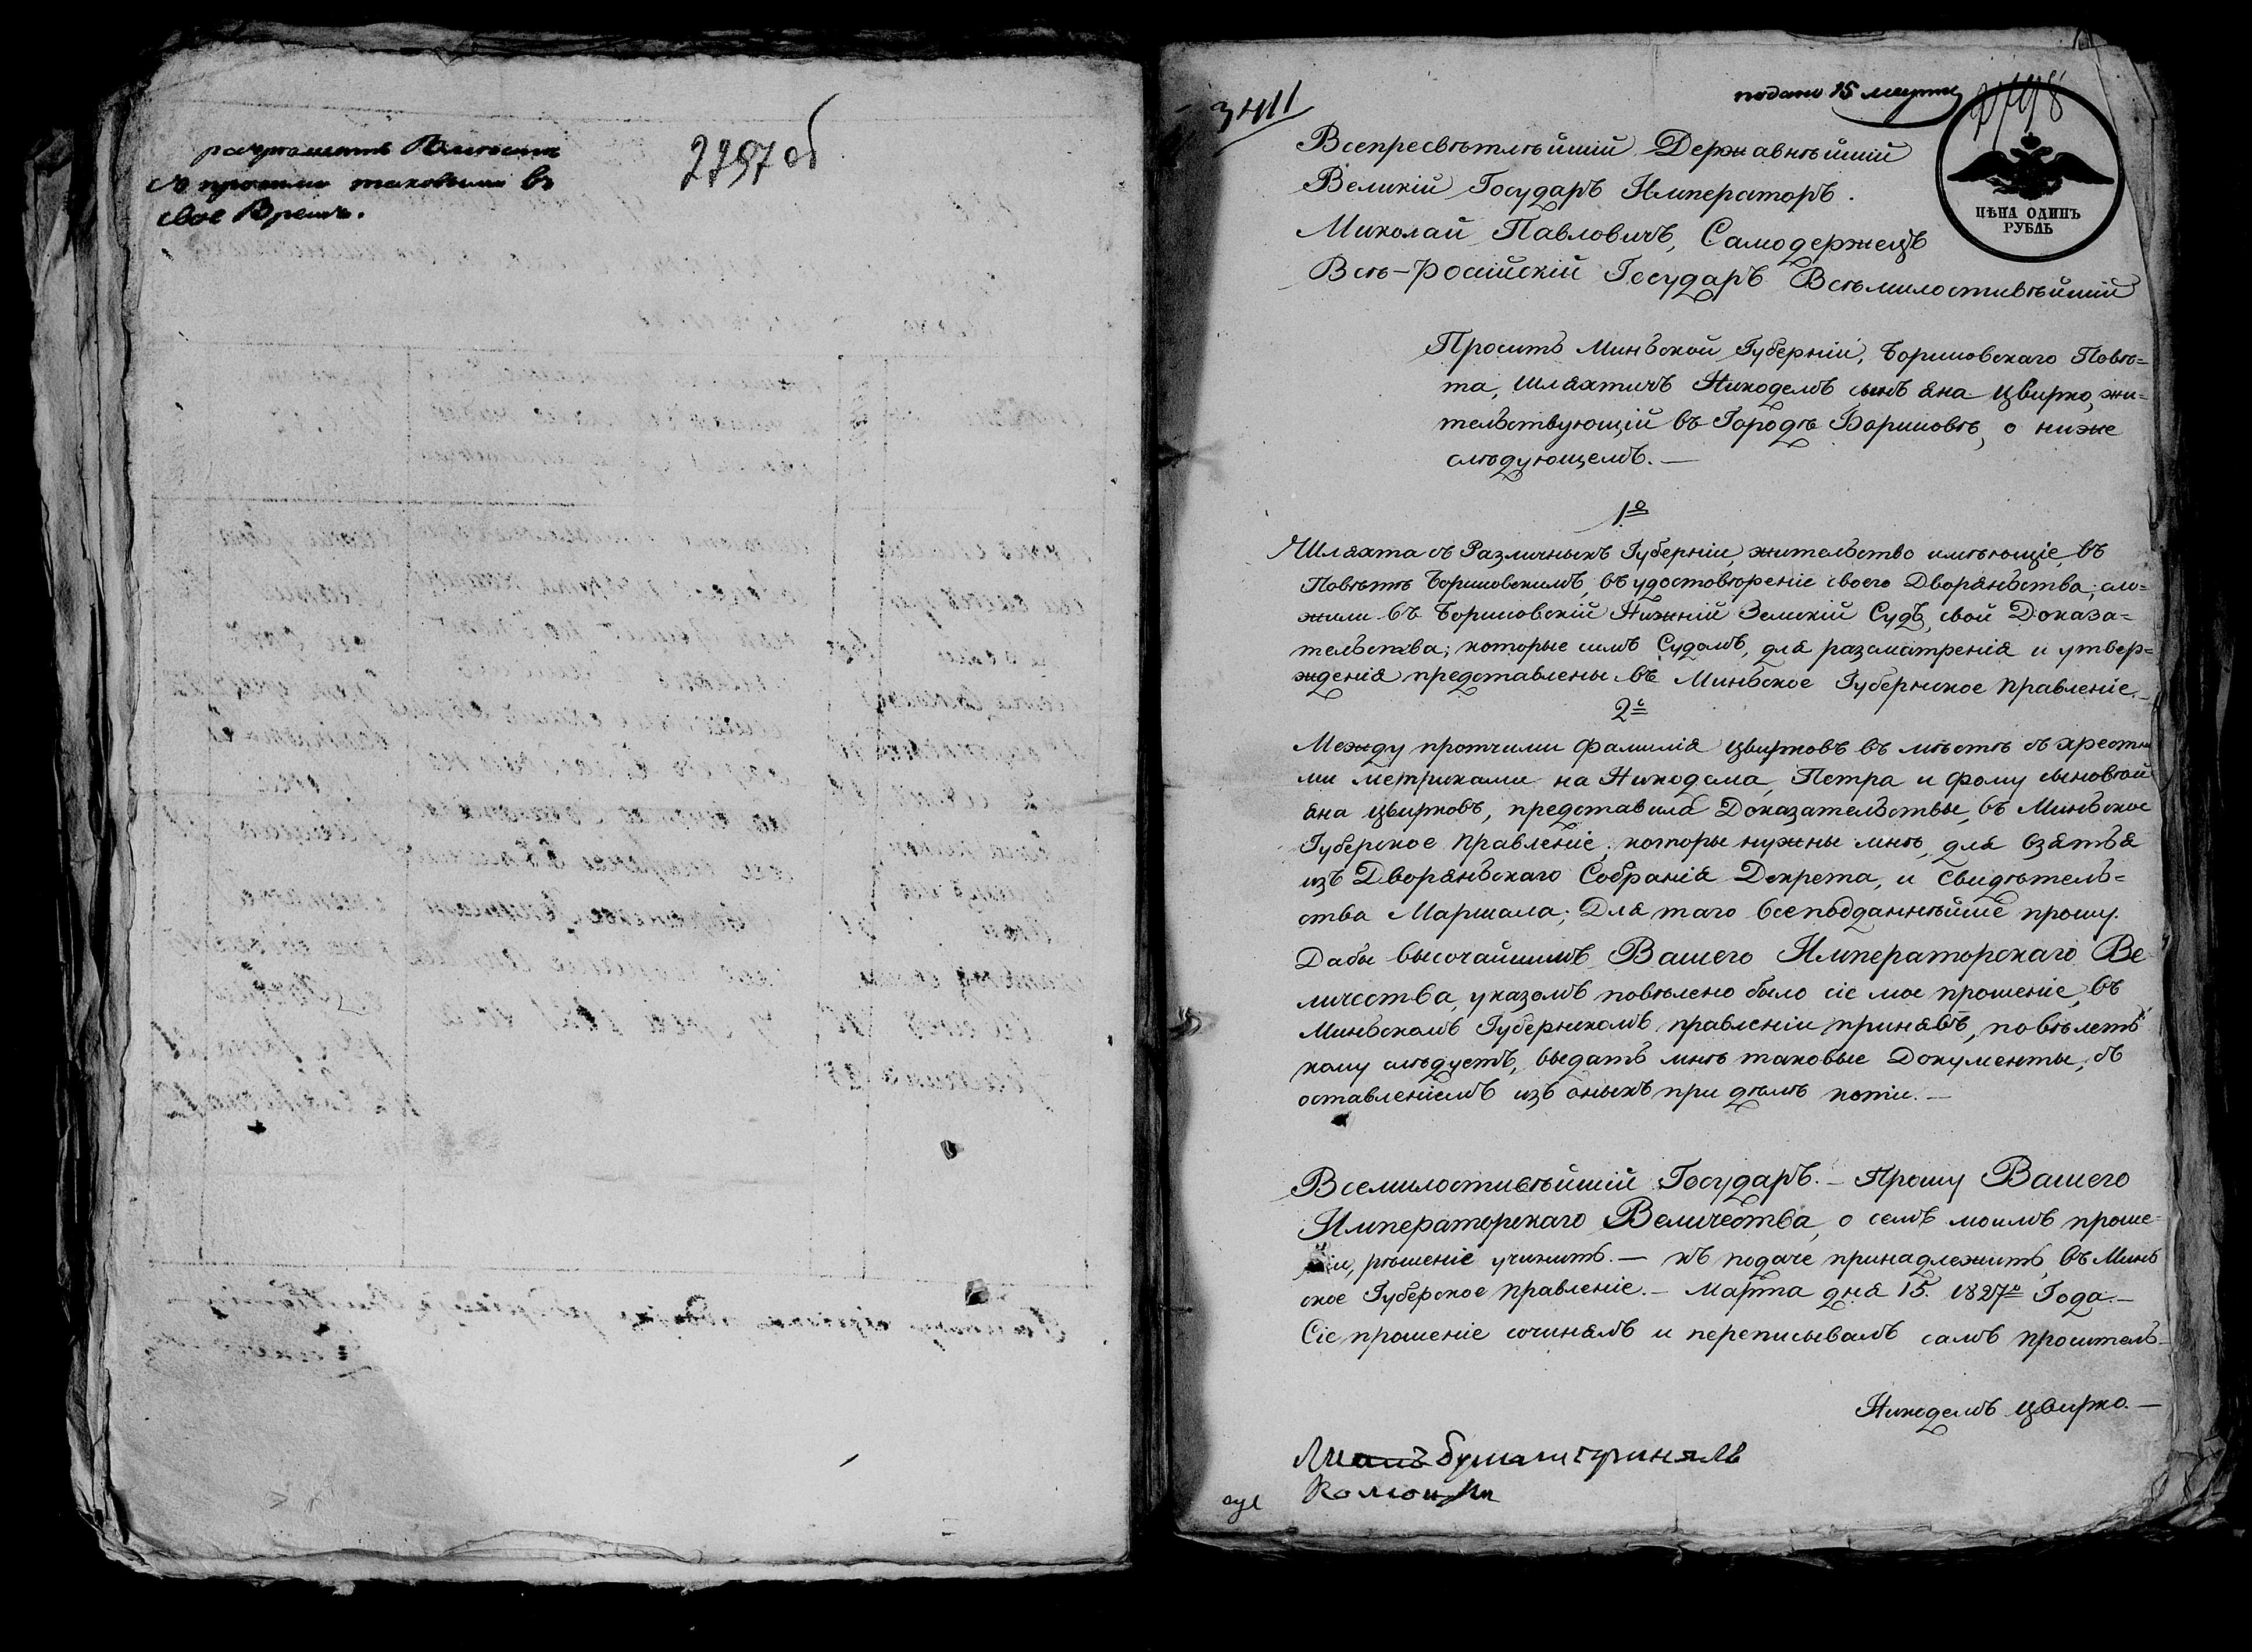 2297 об
свое время.
3411
подано 15 марта
2298
Всепресвѣтлѣйшій Державнѣйшій
Великій Государъ Императоръ.
Николай Павловичъ, Самодержецъ
Всѣ-Російскій Государъ Всѣмилостивѣйшій
ЦѢНА ОДИНЪ
РУБЛЬ
Проситъ Минъской Губерніи, Борисовскаго Повѣ=
та, шляхтичъ Никодемъ сынъ Яна Цвирко, жи=
тельствующій въ Городѣ Борисовѣ, о ниже
слѣдующемъ. —
1º
Шляхта съ Различныхъ Губерніи, жительство имѣющіе, въ
Повѣтѣ Борисовскимъ, въ удостовѣреніе своего Дворянъства; сло=
жили въ Борисовскій Нижній Земскій Судъ, свои Доказа=
тельства; которые симъ Судомъ, для разсматренія и утвер=
жденія представлены въ Минъское Губернское Правленіе. —
2º
Между протчими фамилія Цвирковъ въ мѣстѣ съ хрестны
ми метриками на Никодема, Петра и Фому сыновѣй
Яна Цвирковъ, представила Доказательствы, въ Минъское
Губерское Правленіе; которы нужны мнѣ, для взятья
изъ Дворянъскаго Собранія Декрета, и Свидѣтель=
ства Маршала; Для таго всеподданнѣйше прошу.
Дабы высочайшимъ Вашего Императорскаго Ве
личества, указомъ повѣлено было сіе мое прошеніе, въ
Минъскомъ Губернскомъ правленіи принявъ, повѣлетъ
кому слѣдуетъ, выдать мнѣ таковые Документы, съ
оставленіемъ изъ оныхъ при дѣлѣ копіи. —
Всемилостивѣйшій Государъ. — Прошу Вашего
Императорскаго Величества, о семъ моимъ проше=
ніи, рѣшеніе учинить. — къ подаче принадлежитъ, въ Минъ
ское Губерское Правленіе. — Марта дня 15. 1827º Года. —
Сіе прошеніе сочинялъ и переписывалъ самъ проситель —
Никодемъ Цвирко. —
принялъ